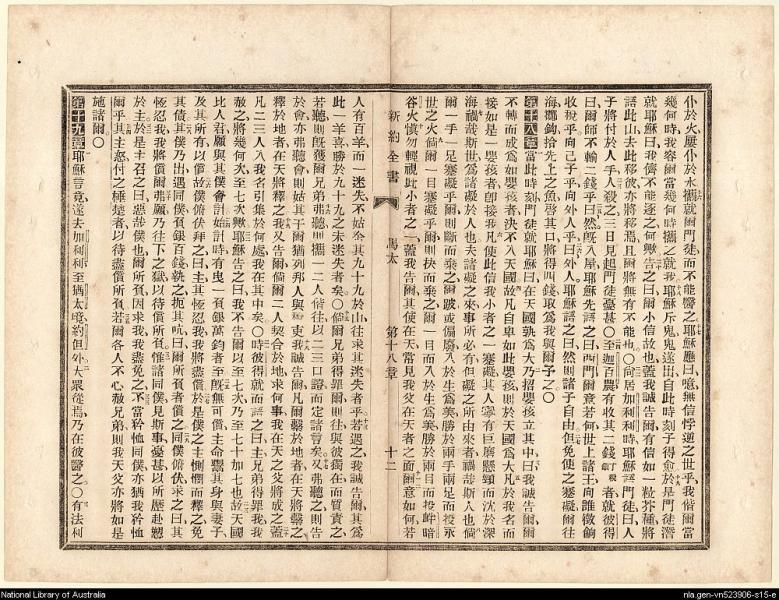 仆於火屢仆於水攜就爾門徒而不能醫之耶穌應曰噫無信悖逆之世乎我偕爾當
幾何時我容爾當幾何時攜之就我耶穌斥鬼鬼遂出自此時刻子得愈於是門徒潛
就耶穌曰我儕不能逐之何歟告之曰爾小信故也蓋我誠告爾有信如一粒芥種將
語此山去此移彼亦將移焉且爾將無有不能也○向居加利利時耶穌語門徒曰人
子將付於人手人殺之三日見起門徒憂甚○至迦百農有收其二錢丁稅者就彼得
曰爾師不輸二錢乎曰然旣入屋耶穌先語之曰西門爾意若何世上諸王向誰徵餉
收稅乎向己子乎向外人乎曰外人耶穌語之曰然則諸子自由但免使之蹇礙爾往
海鈎拾先上之魚啓其口將得四錢取爲我與爾予之○
第十八章當此時刻門徒就耶穌曰在天國孰爲大乃招嬰孩立其中曰我誠告爾爾
不轉而成爲如嬰孩者決不入天國故凡自卑如此嬰孩則於天國爲大凡於我名而
接如是一嬰孩者卽接我凡使此信我小者之一蹇礙其人寧有巨磨懸頸而沈於深
海禍哉斯世爲諸蹇礙於人也夫諸礙之來事所必有但礙之所由來者禍哉斯人也倘
爾一手一足蹇礙乎爾則斷而棄之爾跛或廢入於生爲美勝於兩手兩足而投永
世之火倘爾一目蹇礙乎爾則抉而棄之爾一目而入於生爲美勝於兩目而投暗
谷火愼勿輕視此小者之一蓋我告爾其使在天常見我父在天者之面爾意如何若
新約全書 馬太 第十八章 十二
人有百羊而一迷失不姑舍其九十九於山往求其迷失者乎若遇之我誠告爾其爲
此一羊喜勝於九十九之未迷失者矣○倘爾兄弟得罪爾則往與彼獨在而責之
若聽則旣獲爾兄弟弗聽則攜一二人偕往以二三口證而定諸言矣又弗聽之則告
於會亦弗聽會則姑其于爾猶列邦人與吏我誠告爾凡爾繫於地者在天將繫之
釋於地者在天將釋之我又告爾倘爾二人契合於地求何事我在天之父將成之蓋
凡二三人入我名引集於何處我在其中矣○時彼得就而語之曰主兄弟得罪我我
赦之將幾何次至七次歟耶穌告之曰我不告爾以至七次乃至七十加七也故天國
比人君願與其僕會計始計時有曳一負銀萬鈞者至旣無可償主命鬻其身與妻子
及其所有以償故僕俯伏拜之曰主恒忍我我將盡償於是僕之主惻憫而釋之免
其債其僕乃出遇同僕負銀百錢執之扼其吭曰爾所負者償之同僕俯伏求之曰其
恒忍我我將償爾弗願乃往下之獄以待償所負惟諸同僕見斯事憂甚以所歷赴愬
於主於是主召之曰惡哉僕也爾所負因求我我盡免之不當矜恤同僕亦猶我矜恤
爾乎其主怒付之棰楚者以待盡償所負若爾各人不心赦兄弟則我天父亦將如是
施諸爾○
第十九章耶穌言竟遂去加利利至猶太境約但外大衆從焉乃在彼醫之○有法利
National Library of Australia
nla.gen-vn523906-s15-e